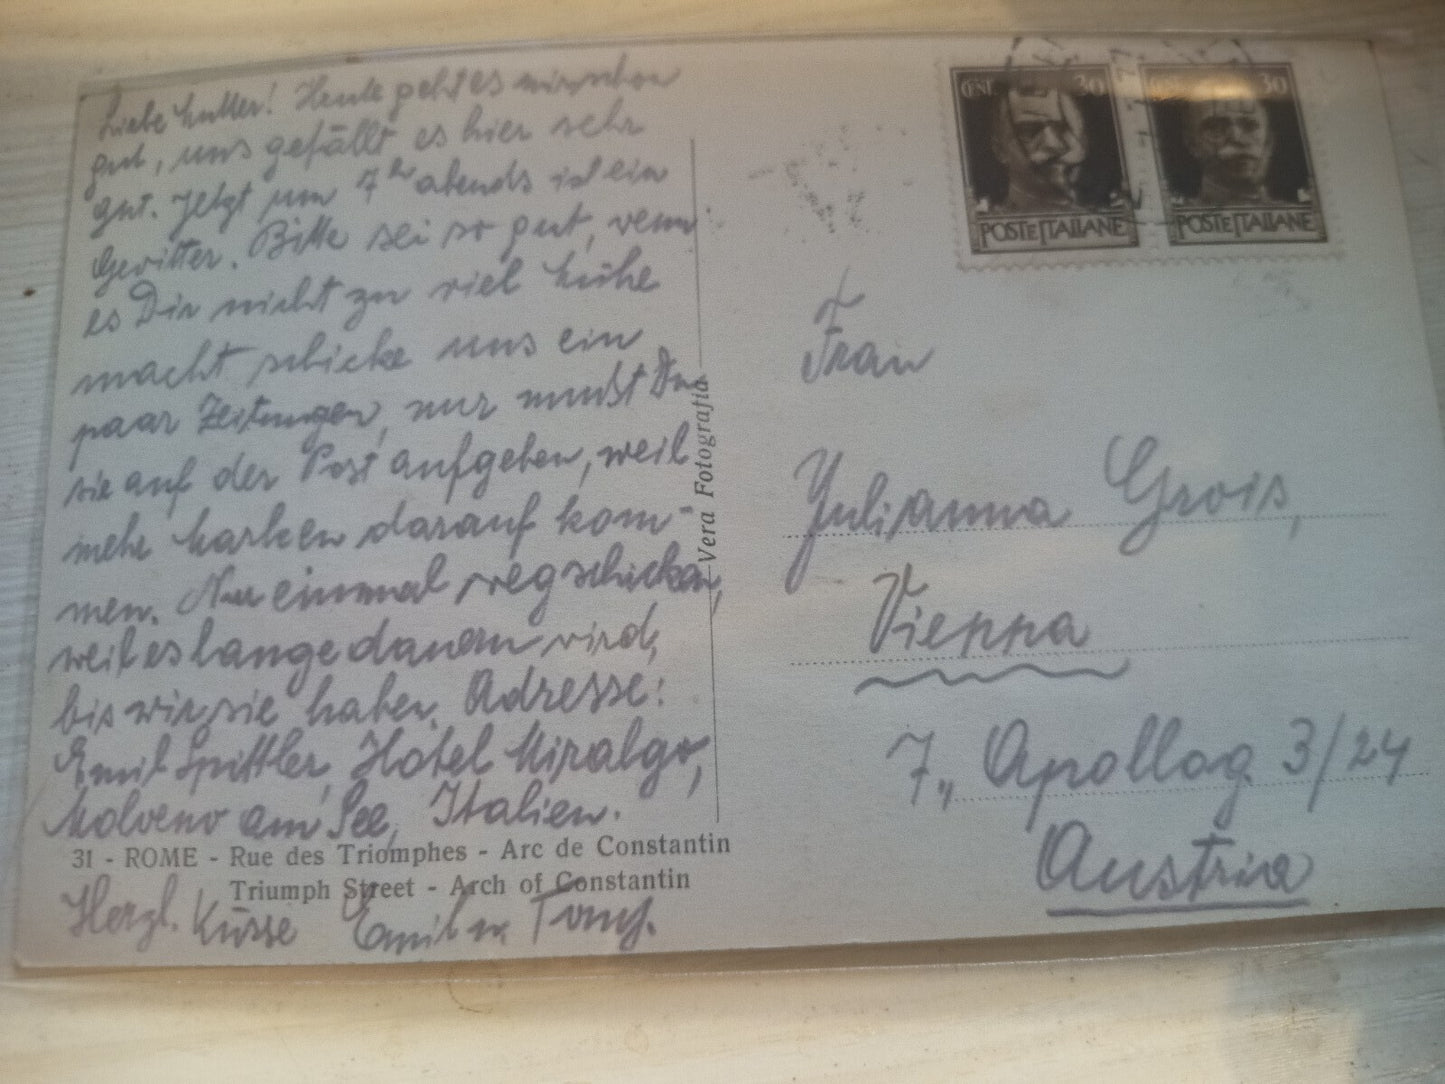 Liebe Mutter! Heute geht es mir schon
gut, uns gefällt es hier sehr
gut. Jetzt um 7 abends ist ein
Gewitter. Bitte sei so gut, wenn
es Dir nicht zu viel Mühe
macht schicke uns ein
paar Zeitungen, nur mußt Du
sie auf der Post aufgeben, weil
mehr Marken darauf kom-
men. Nur einmal wegschicken,
weil es lange dauern wird,
bis wir sie haben. Adresse:
Emil Spittler, Hotel Miralgo,
Molveno am See, Italien.
31 - ROME - Rue des Triomphes - Arc de Constantin
Triumph Street - Arch of Constantin
Herzl. Küsse Emil u. Tony.
Vera Fotografia
CENT. 30
POSTE ITALIANE
CENT. 30
POSTE ITALIANE
Frau
Julianna Grois,
Vienna
7., Apollog. 3/24
Austria